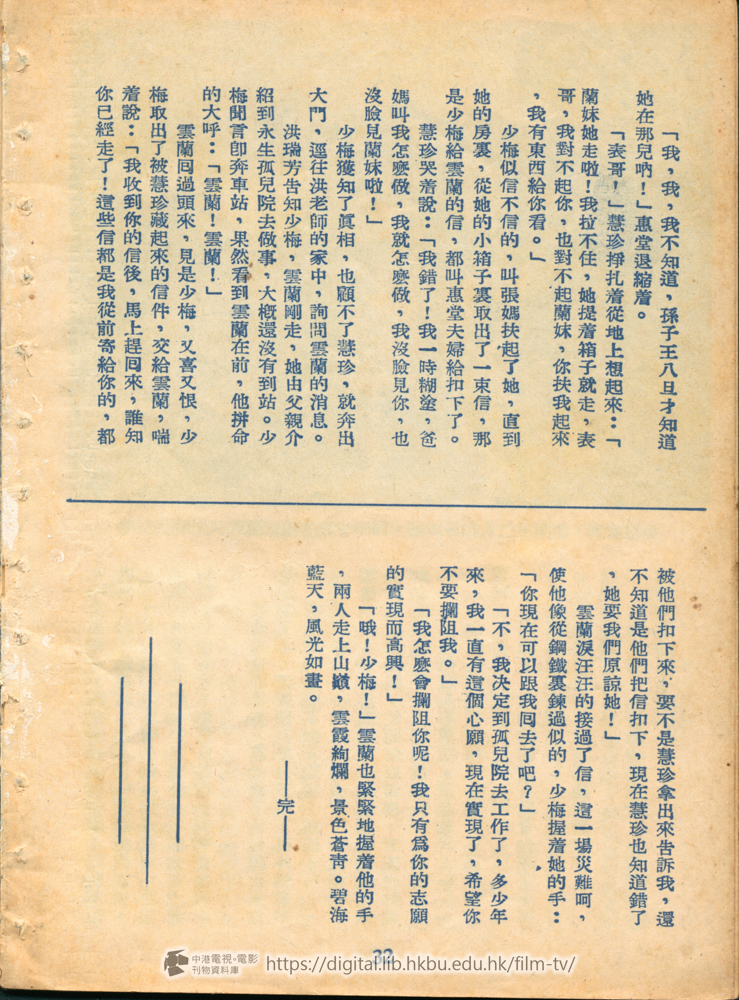 「我，我，我不知道，孫子王八旦才知道
她在那兒吶！」惠堂退縮着。
「表哥！」慧珍掙扎着從地上想起來：「
蘭妹她走啦！我拉不住，她提着箱子就走，表
哥，我對不起你，也對不起蘭妹，你扶我起來
，我有東西給你看。」
少梅似信不信的，叫張媽扶起了她，直到
她的房裏，從她的小箱子裏取出了一束信，那
是少梅給雲蘭的信，都叫惠堂夫婦給扣下了。
慧珍哭着說：「我錯了！我一時糊塗，爸
媽叫我怎麽做，我就怎麽做，我沒臉見你，也
沒臉見蘭妹啦！」
少梅獲知了眞相，也顧不了慧珍，就奔出
大門，逕往洪老師的家中，詢問雲蘭的消息。
洪瑞芳告知少梅，雲蘭剛走，她由父親介
紹到永生孤兒院去做事，大槪還沒有到站。少
梅聞言卽奔車站，果然看到雲蘭在前，他拼命
的大呼：「雲蘭！雲蘭！」
雲蘭囘過頭來，見是少梅，又喜又恨，少
梅取出了被慧珍藏起來的信件，交給雲蘭，喘
着說：「我收到你的信後，馬上趕囘來，誰知
你已經走了！這些信都是我從前寄給你的，都
被他們扣下來，要不是慧珍拿出來告訴我，還
不知道是他們把信扣下，現在慧珍也知道錯了
，她要我們原諒她！」
雲蘭淚汪汪的接過了信，這一場災難呵，
使他像從鋼鐵裏鍊過似的，少梅握着她的手：
「你現在可以跟我囘去了吧？」
「不，我决定到孤兒院去工作了，多少年
來，我一直有這個心願，現在實現了，希望你
不要攔阻我。」
「我怎麽會攔阻你呢！我只有爲你的志願
的實現而高興！」
「哦！少梅！」雲蘭也緊緊地握着他的手
，兩人走上山巔，雲霞絢爛，景色蒼靑。碧海
藍天，風光如畫。
——完——
32
中港電視·電影
刊物資料庫
https://digital.lib.hkbu.edu.hk/film-tv/